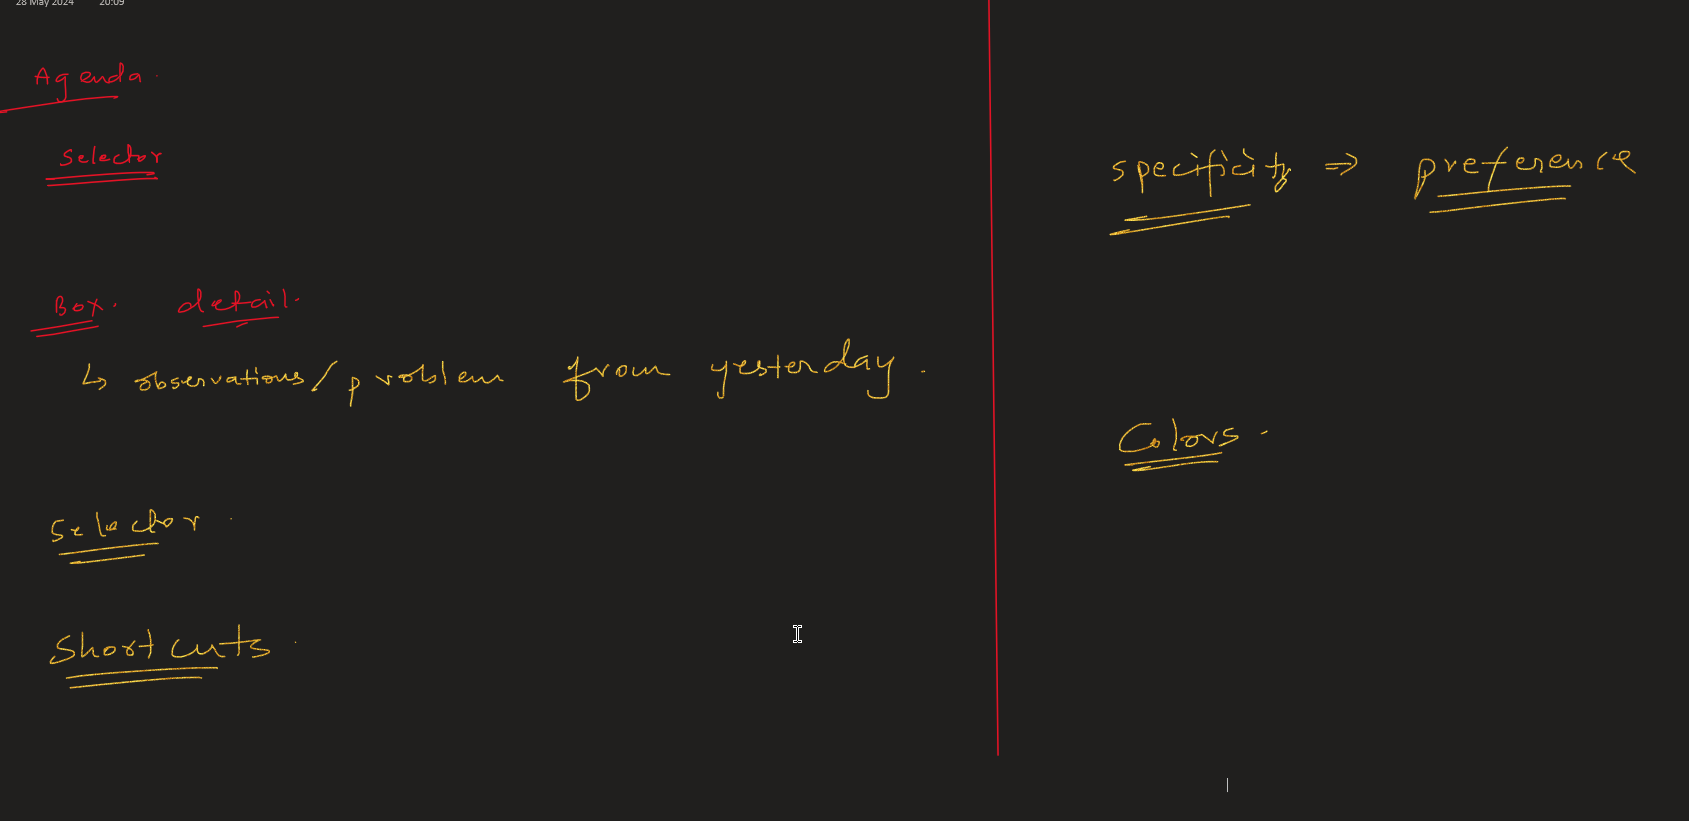 28 May 2024 20:09
Agenda.
Selector
Box. detail.
↳ observations/problem from yesterday.
Selector.
Shortcuts.
specificity ⇒ preference
Colors.